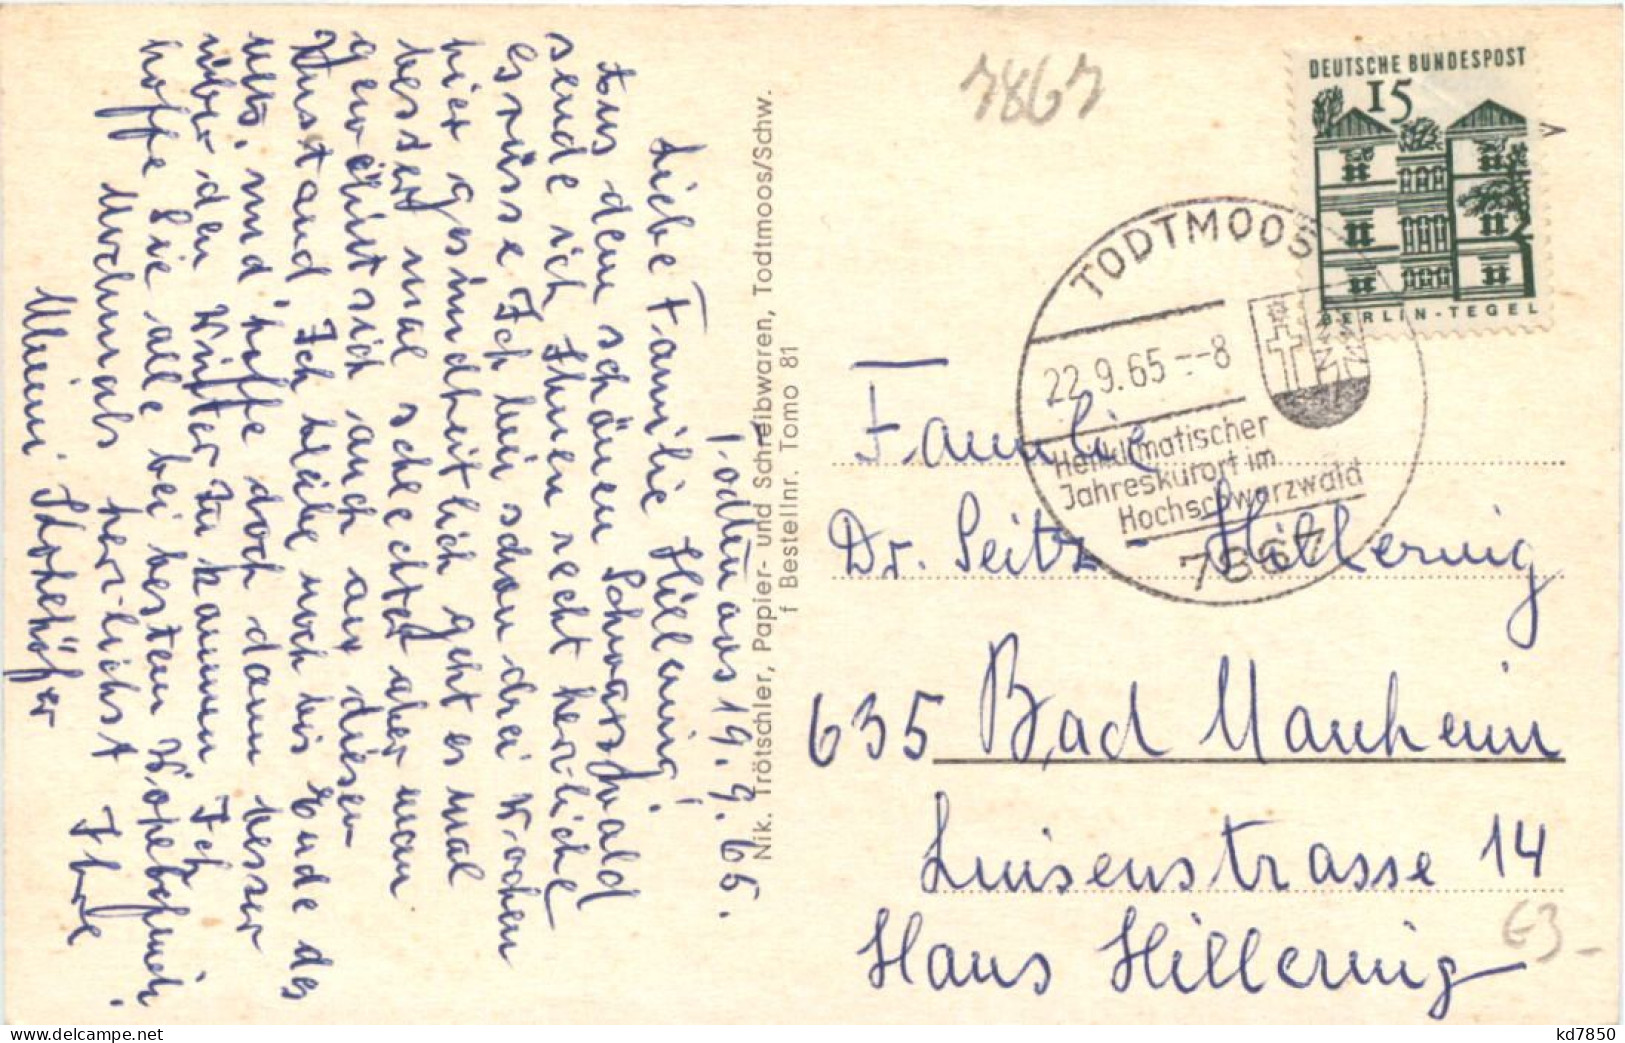 Todtmoos 19.9.65.
Liebe Familie Hillernig!
Aus dem schönen Schwarzwald
sende ich Ihnen recht herzliche
Grüsse. Ich bin schon drei Wochen
hier gesundheitlich geht es mal
besser mal schlechter aber man
gewöhnt sich auch an diesen
Zustand Ich bleibe noch bis Ende des
Mts. und hoffe doch dann besser
über den Winter zu kommen Ich
hoffe Sie alle bei bestem
Nochmals herzlichst Ihre
Strohhöfer
Nik. Trötschler, Papier- und Schreibwaren, Todtmoos/Schw.
f Bestellnr. Tomo 81
7867
DEUTSCHE BUNDESPOST
15
BERLIN-TEGEL
TODTMOOS
22.9.65 --8
Heilklimatischer
Jahreskurort im
Hochschwarzwald
7867
Familie
Dr. Seitz - Hillernig
635 Bad Nauheim
Luisenstrasse 14
Haus Hillernig
€3-
kd7850